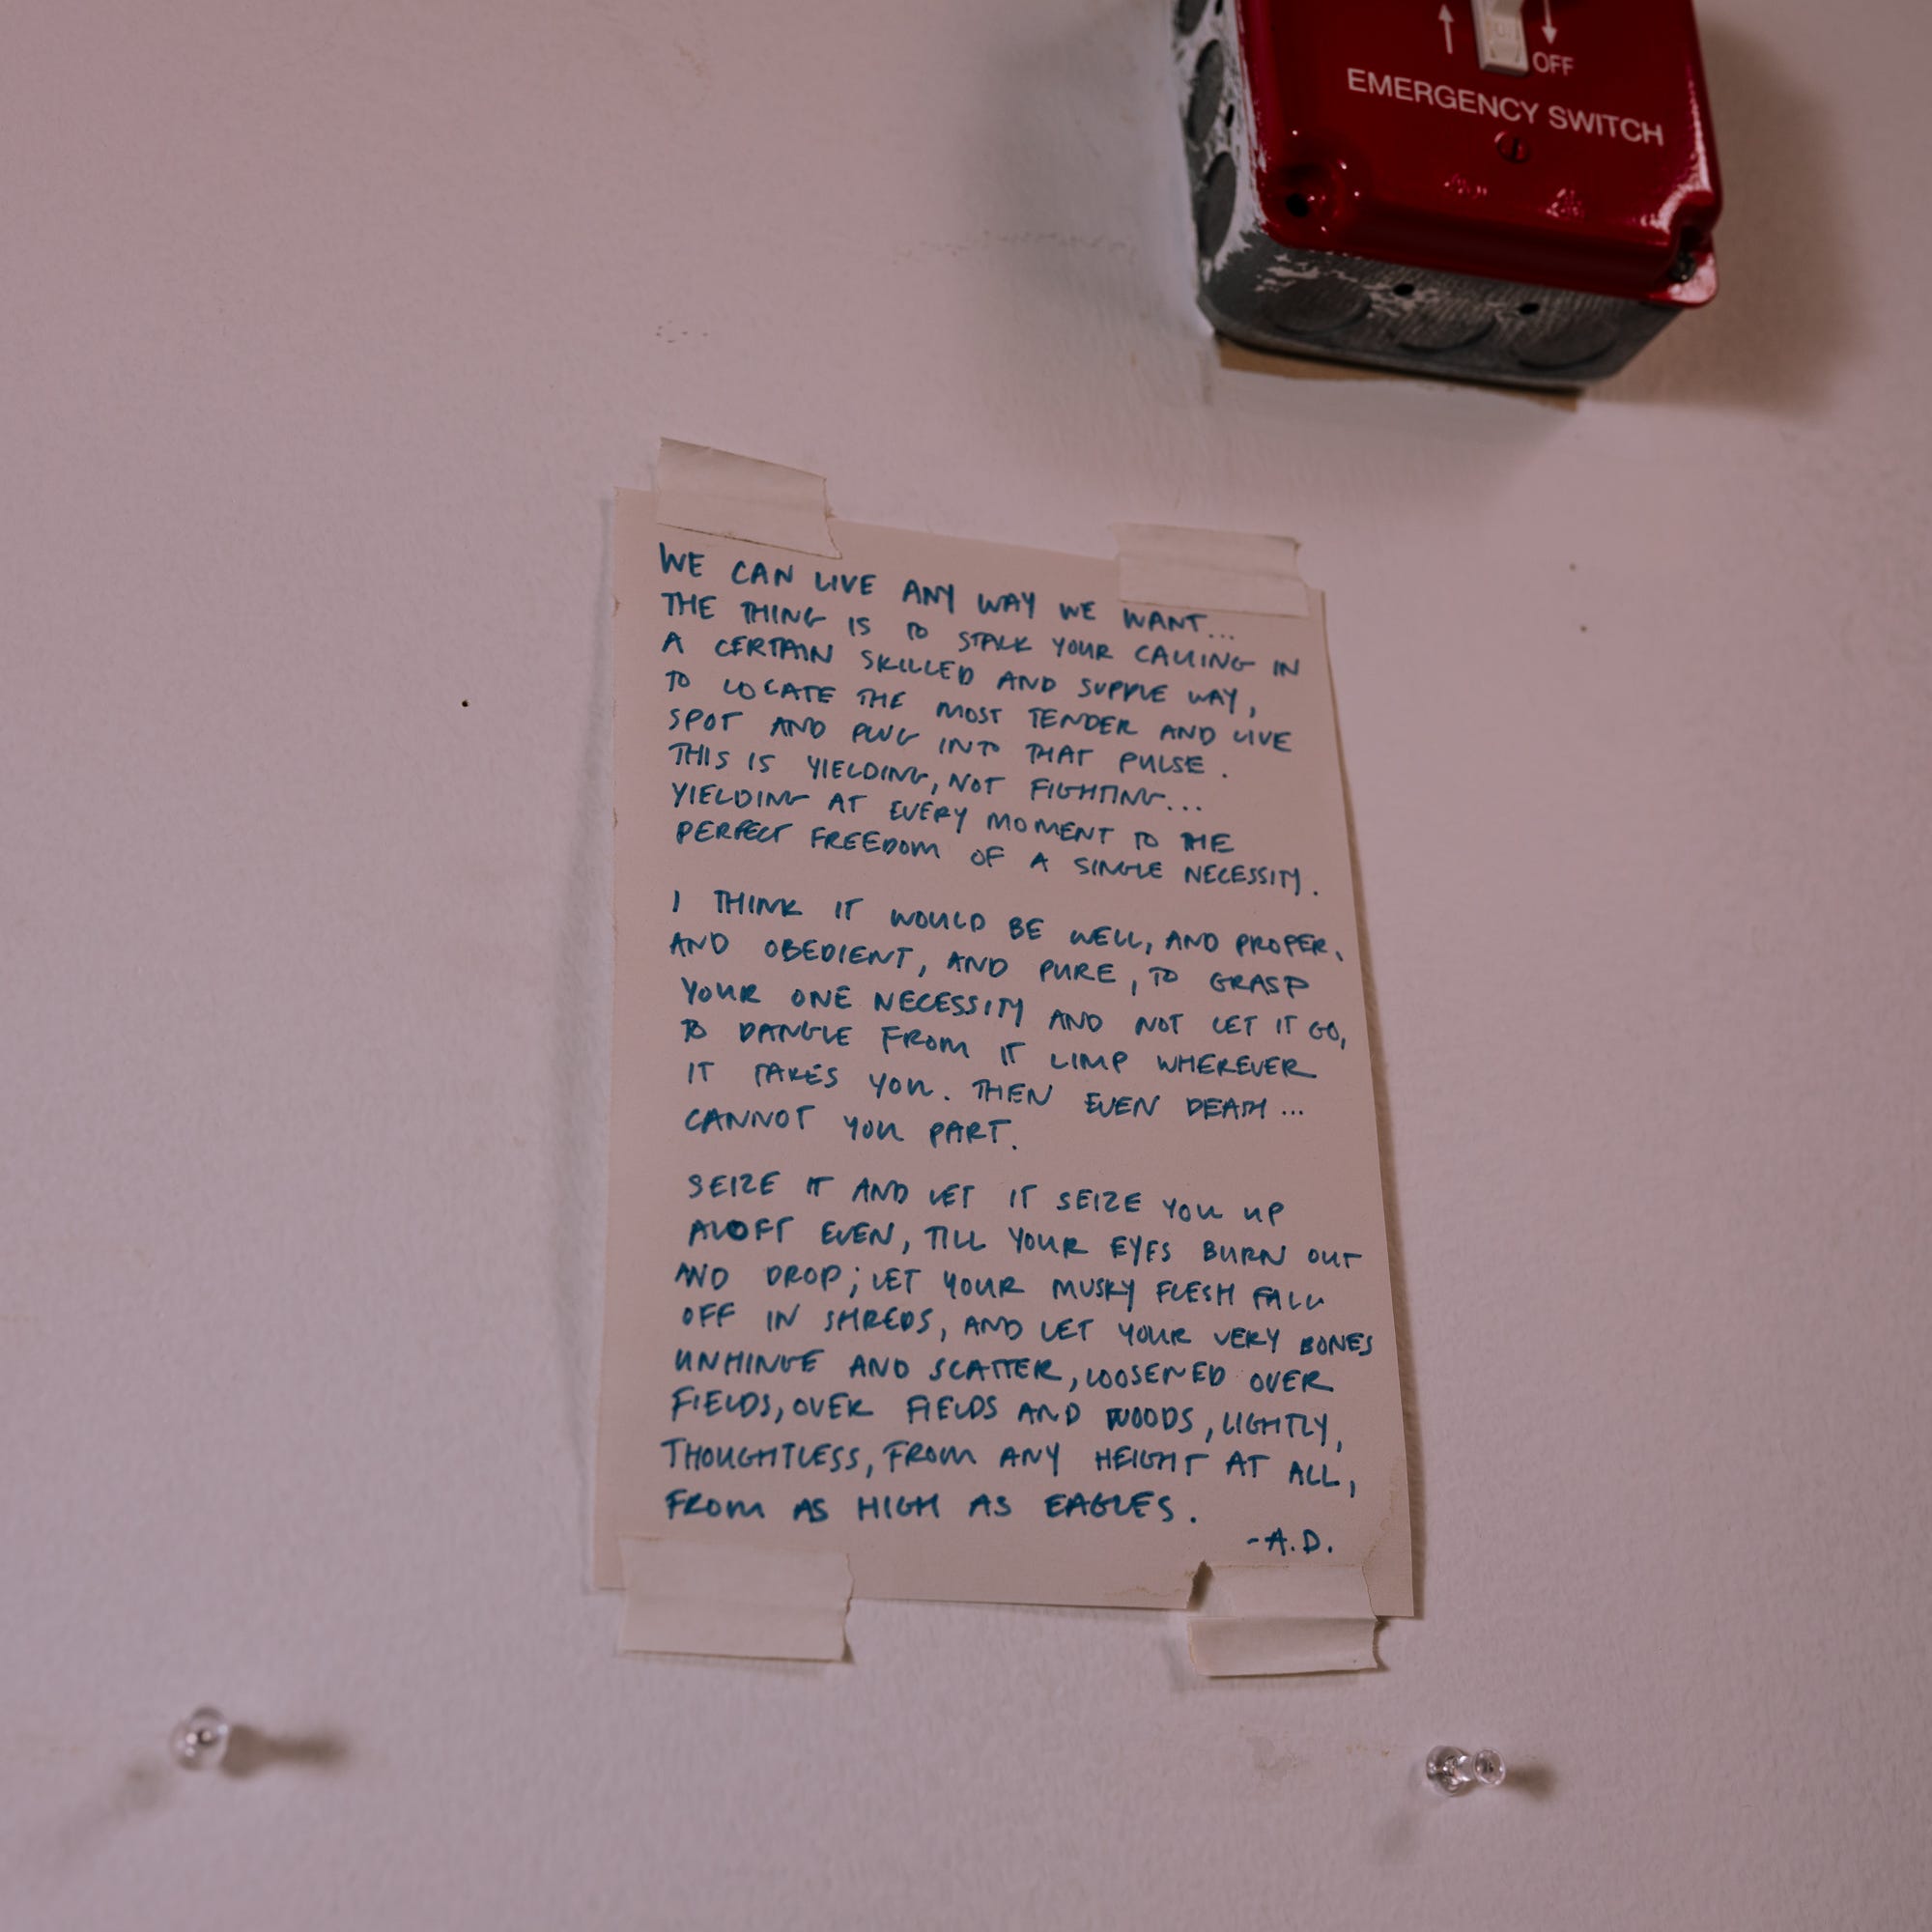 OFF
EMERGENCY SWITCH
WE CAN LIVE ANY WAY WE WANT...
THE THING IS TO STALK YOUR CALLING IN
A CERTAIN SKILLED AND SUPPLE WAY,
TO LOCATE THE MOST TENDER AND LIVE
SPOT AND PLUG INTO THAT PULSE.
THIS IS YIELDING, NOT FIGHTING...
YIELDING AT EVERY MOMENT TO THE
PERFECT FREEDOM OF A SINGLE NECESSITY.
I THINK IT WOULD BE WELL, AND PROPER,
AND OBEDIENT, AND PURE, TO GRASP
YOUR ONE NECESSITY AND NOT LET IT GO,
TO DANGLE FROM IT LIMP WHEREVER
IT TAKES YOU. THEN EVEN DEATH...
CANNOT YOU PART.
SEIZE IT AND LET IT SEIZE YOU UP
ALOFT EVEN, TILL YOUR EYES BURN OUT
AND DROP; LET YOUR MUSKY FLESH FALL
OFF IN SHREDS, AND LET YOUR VERY BONES
UNHINGE AND SCATTER, LOOSENED OVER
FIELDS, OVER FIELDS AND WOODS, LIGHTLY,
THOUGHTLESS, FROM ANY HEIGHT AT ALL,
FROM AS HIGH AS EAGLES.
-A.D.